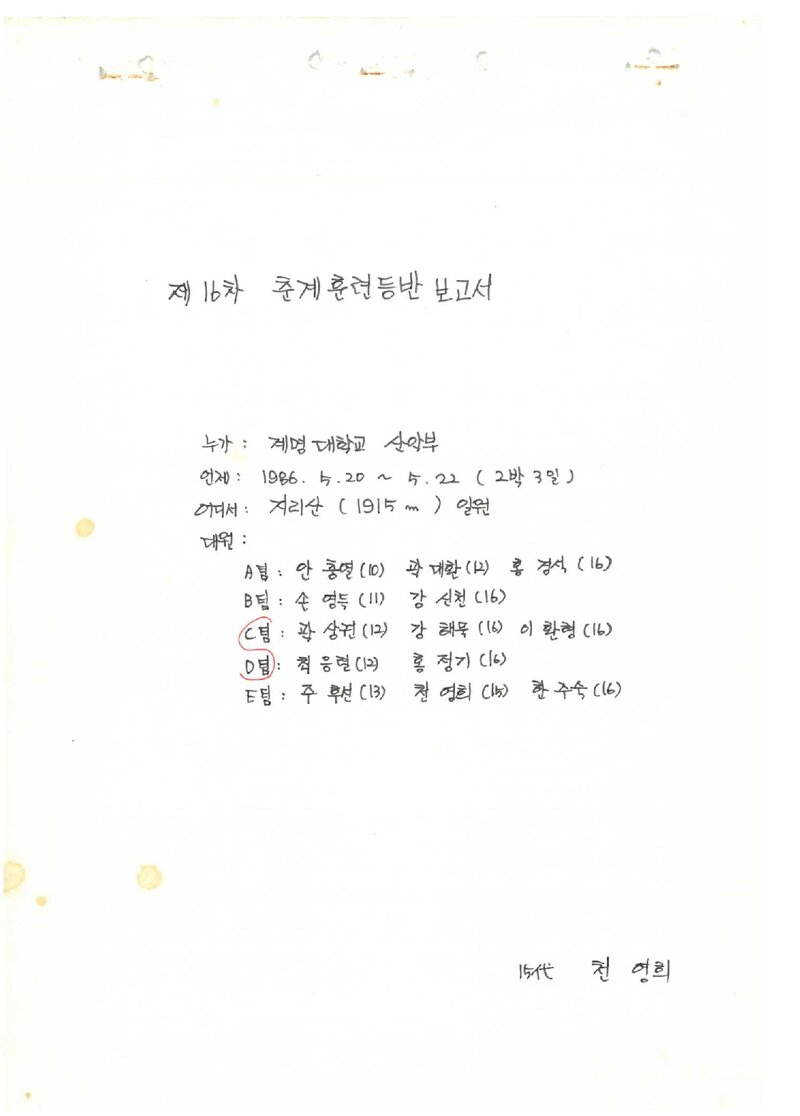 제 16차 춘계훈련등반 보고서
누가 : 계명 대학교 산악부
언제 : 1986. 5. 20 ~ 5. 22 ( 2박 3일 )
어디서 : 지리산 ( 1915 m ) 일원
대원 :
A팀 : 안 홍열(10) 곽 대환(12) 홍 경석(16)
B팀 : 손 영득(11) 강 신천(16)
C팀 : 곽 상권(12) 강 태욱(16) 이 환형(16)
D팀 : 최 응렬(12) 홍 정기(16)
E팀 : 주 (13) 천 영희(15) 한 주숙(16)
15代 천 영희